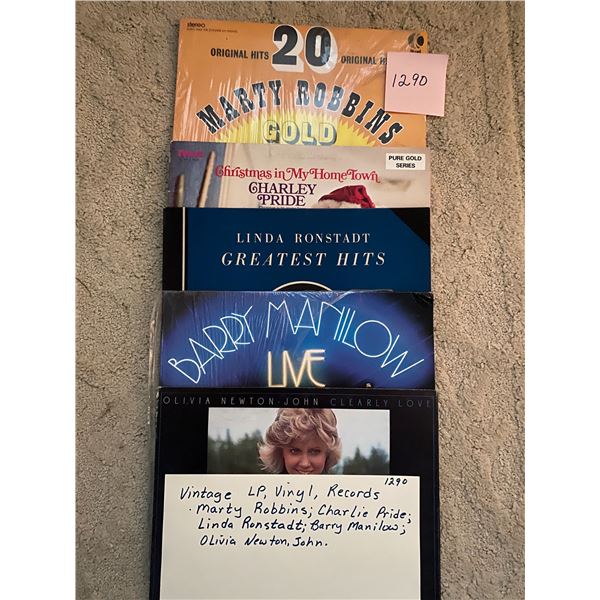 stereo
20
ORIGINAL HITS ORIGINAL
1290
MARTY ROBBINS
GOLD
PURE GOLD
SERIES
Christmas in My Home Town
CHARLEY
PRIDE
LINDA RONSTADT
GREATEST HITS
BARRY MANILOW
LIVE
OLIVIA NEWTON-JOHN CLEARLY LOVE
1290
Vintage LP, Vinyl, Records
. Marty Robbins; Charlie Pride;
Linda Ronstadt; Barry Manilow;
Olivia Newton, John.